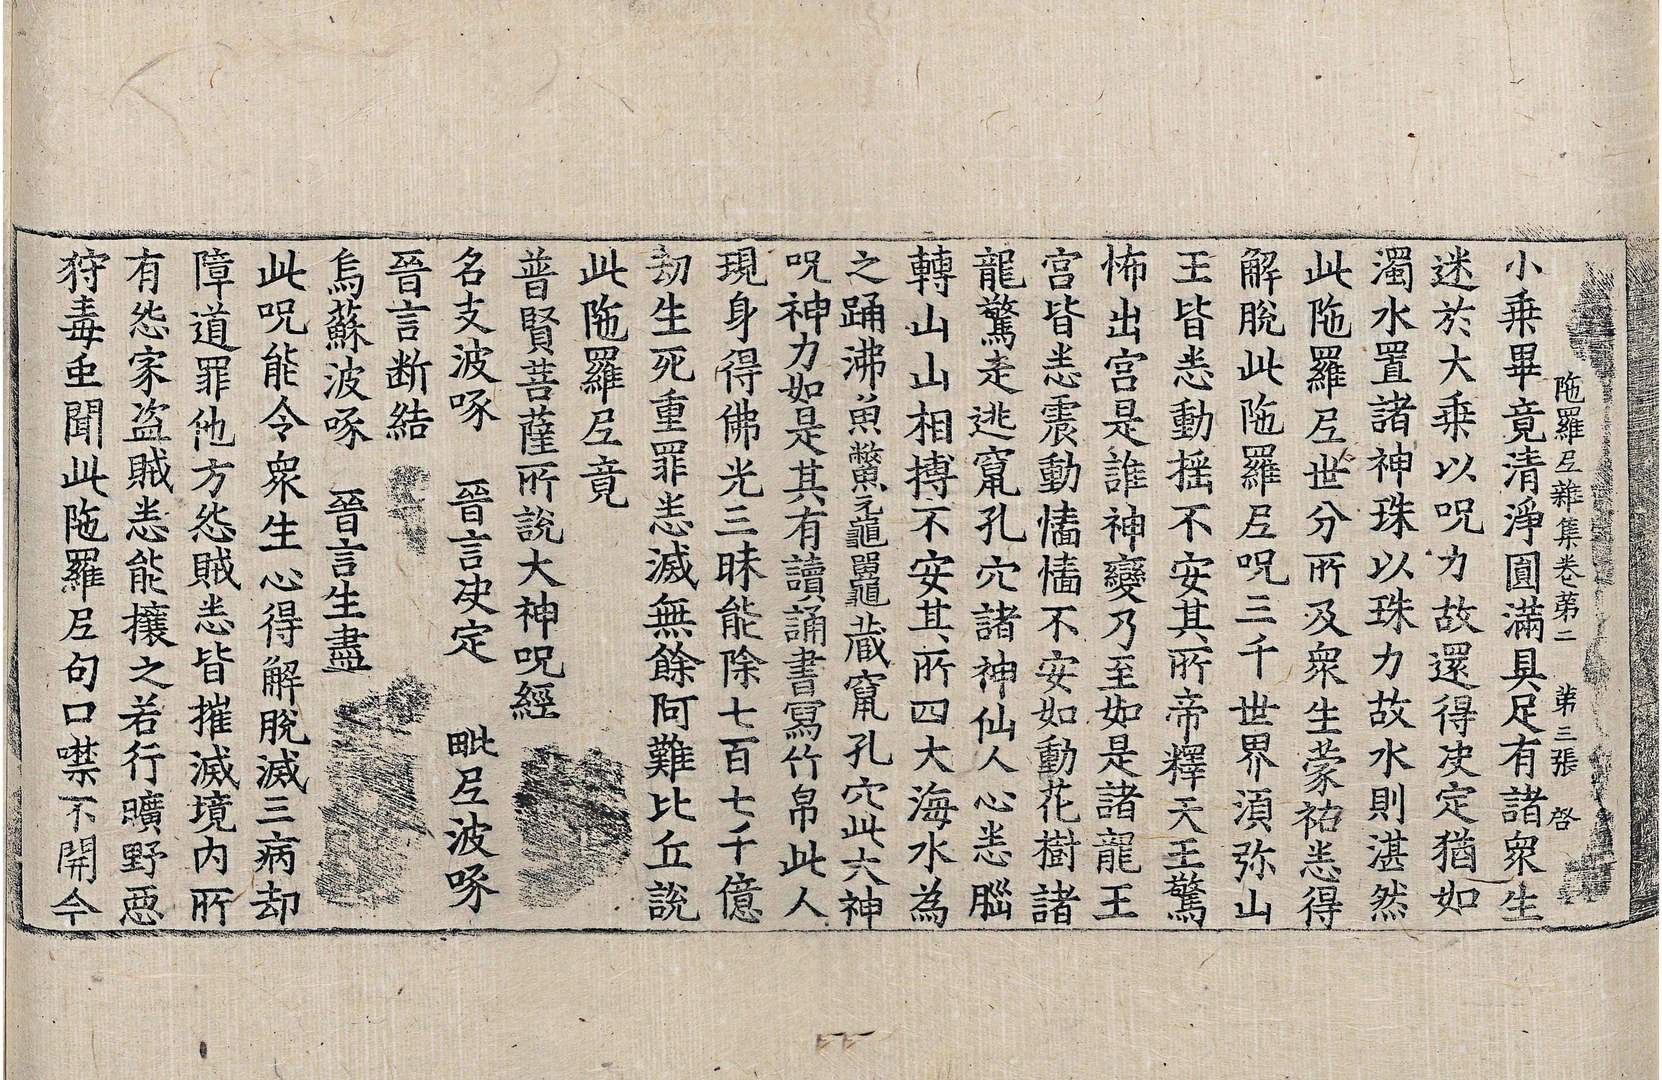 陁羅尼雜集卷苐二 苐三張 啓
小乗畢竟清淨圎滿具足有諸衆生
迷於大乗以呪力故還得决定猶如
濁水置諸神珠以珠力故水則湛然
此陁羅尼世分所及衆生蒙祐悉得
解脫此陁羅尼呪三千世界湏弥山
王皆悉動揺不安其所帝釋天王驚
怖出宫是誰神變乃至如是諸龍王
宫皆悉震動慉慉不安如動花樹諸
龍驚走逃竄孔穴諸神仙人心悉𢙉
轉山山相搏不安其所四大海水為
之踊沸魚鱉黿鼉龜蔵竄孔穴此大神
呪神力如是其有讀誦書冩竹帛此人
現身得佛光三昧能除七百七千億
劫生死重罪悉滅無餘阿難比丘說
此陁羅尼竟
普賢菩薩所說大神呪經
名支波啄 晉言决定 毗尼波啄
晉言断結
烏蘇波啄 晉言生盡
此呪能令衆生心得解脫滅三病却
障道罪他方怨賊悉皆摧滅境内所
有怨家盗賊悉能攘之若行曠野惡
狩毒䖝聞此陁羅尼句口噤不開今